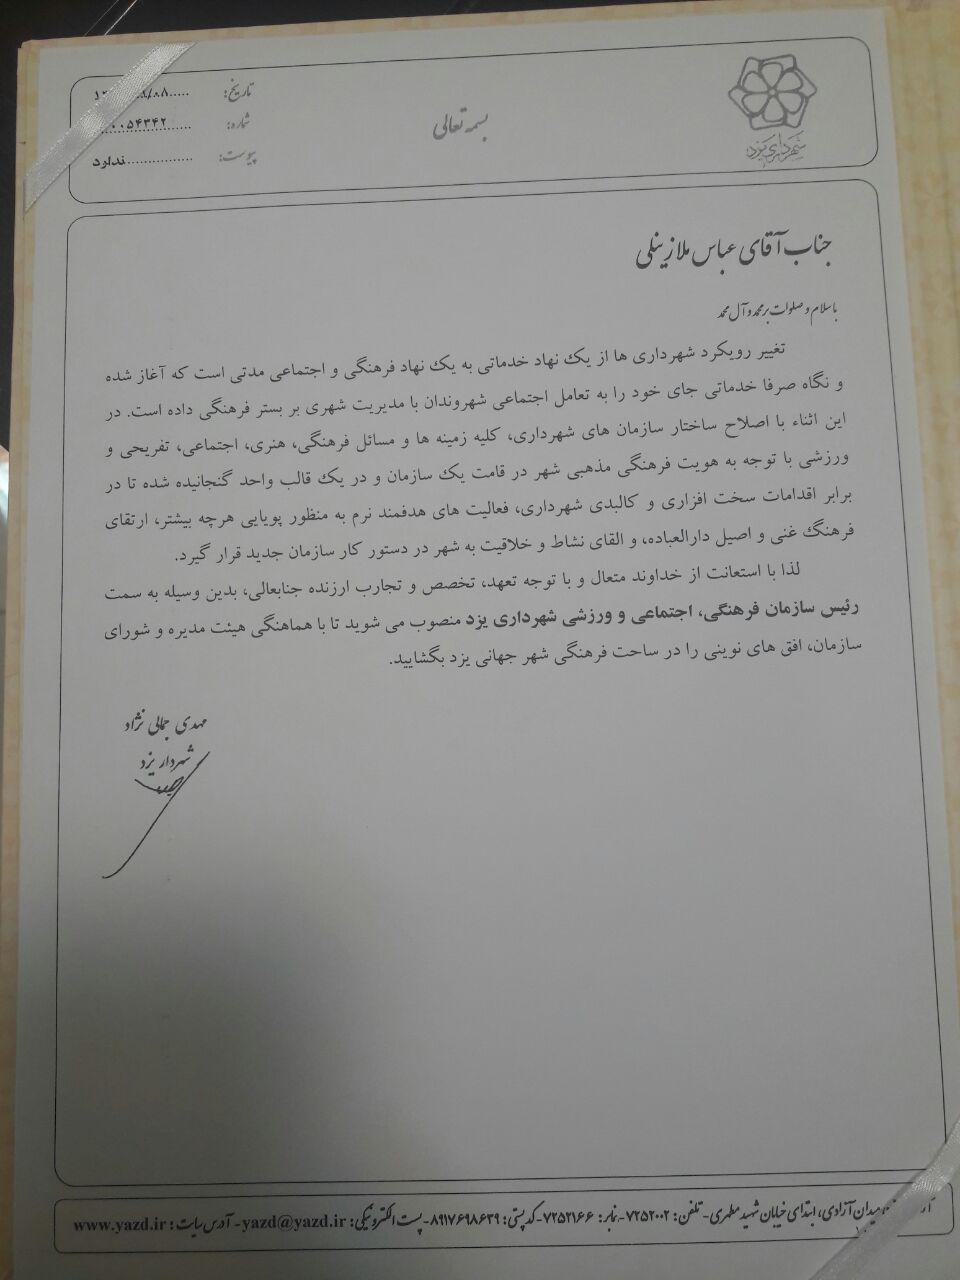 شهرداری یزد
بسمه تعالی
تاریخ:
شماره: ۰۰۵۴۳۴۲
پیوست: ندارد
جناب آقای عباس ملازینلی
با سلام و صلوات بر محمد و آل محمد
تغییر رویکرد شهرداری ها از یک نهاد خدماتی به یک نهاد فرهنگی و اجتماعی مدتی است که آغاز شده
و نگاه صرفا خدماتی جای خود را به تعامل اجتماعی شهروندان با مدیریت شهری بر بستر فرهنگی داده است. در
این اثناء با اصلاح ساختار سازمان های شهرداری، کلیه زمینه ها و مسائل فرهنگی، هنری، اجتماعی، تفریحی و
ورزشی با توجه به هویت فرهنگی مذهبی شهر در قامت یک سازمان و در یک قالب واحد گنجانیده شده تا در
برابر اقدامات سخت افزاری و کالبدی شهرداری، فعالیت های هدفمند نرم به منظور پویایی هرچه بیشتر، ارتقای
فرهنگ غنی و اصیل دارالعباده، و القای نشاط و خلاقیت به شهر در دستور کار سازمان جدید قرار گیرد.
لذا با استعانت از خداوند متعال و با توجه تعهد، تخصص و تجارب ارزنده جنابعالی، بدین وسیله به سمت
رئیس سازمان فرهنگی، اجتماعی و ورزشی شهرداری یزد منصوب می شوید تا با هماهنگی هیئت مدیره و شورای
سازمان، افق های نوینی را در ساحت فرهنگی شهر جهانی یزد بگشایید.
مهدی جمالی نژاد
شهردار یزد
میدان آزادی، ابتدای خیابان شهید مطهری- تلفن: ۷۲۵۲۰۰۲- نمابر: ۷۲۵۲۱۶۶-کدپستی: ۸۹۱۷۶۹۸۶۳۹-پست الکترونیکی: yazd@yazd.ir- آدرس سایت: www.yazd.ir